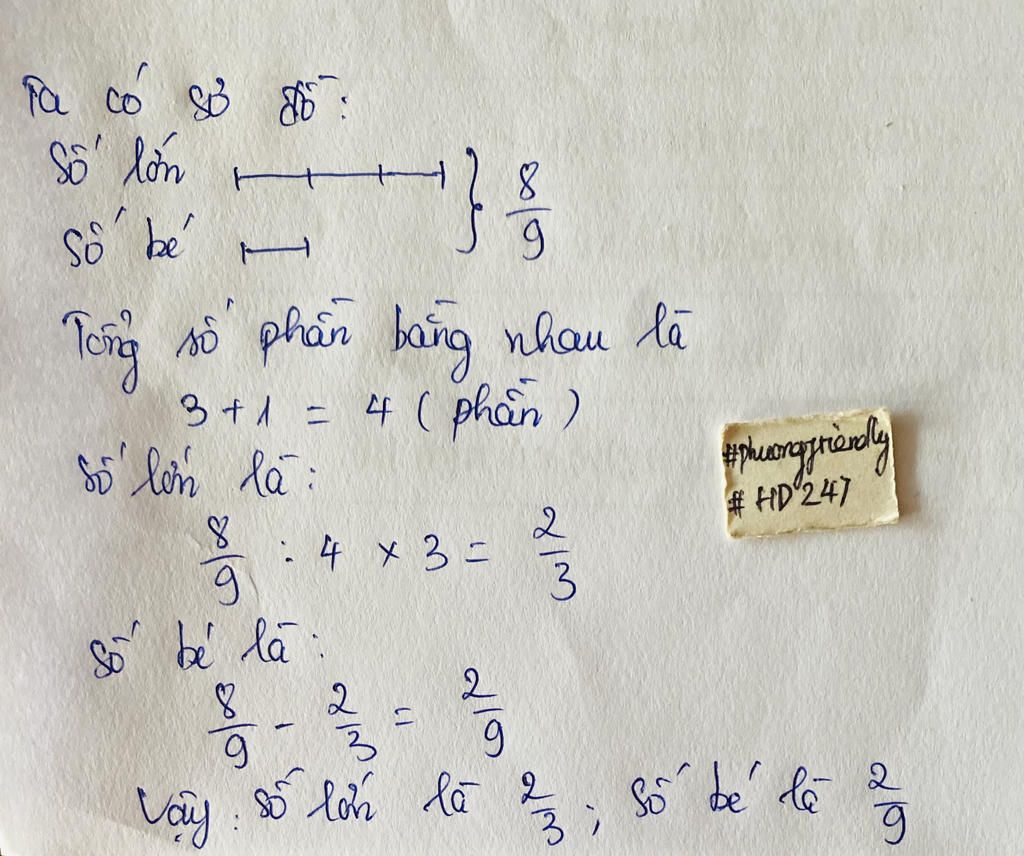 Ta có sơ đồ:
Số lớn } 8/9
Số bé
Tổng số phần bằng nhau là
3 + 1 = 4 ( phần )
Số lớn là:
8/9 : 4 × 3 = 2/3
Số bé là:
8/9 - 2/3 = 2/9
Vậy: số lớn là 2/3; số bé là 2/9
#phuongfriendly
# HD 247